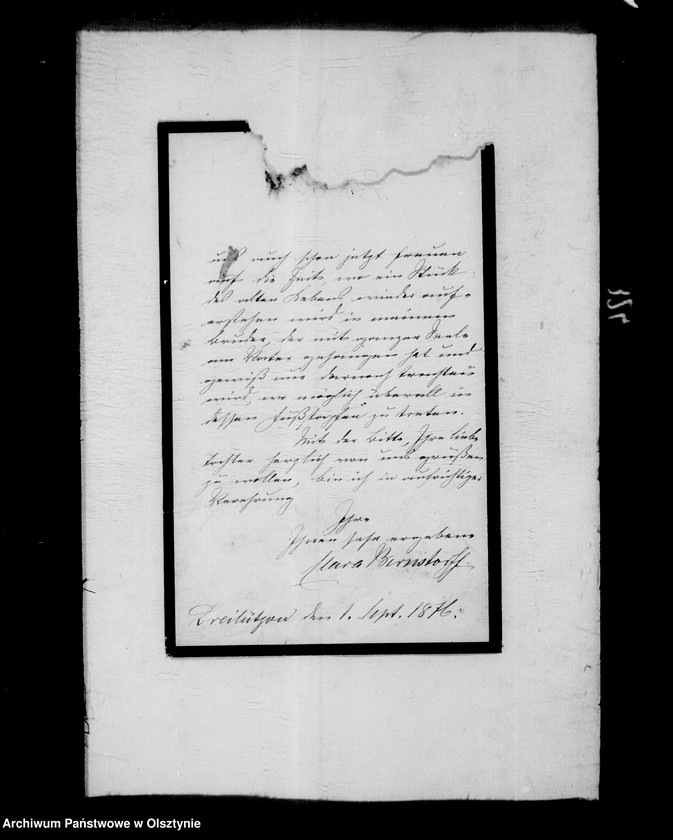 uns auch schon jetzt freuen
auf die Zeit, wo ein Stück
des alten Lebens wieder auf-
erstehen wird in meinem
Bruder, der mit ganzer Seele
am Vater gehangen hat und
gewiß nur darnach trachten
wird, wo möglich überall in
dessen Fußstapfen zu treten.
Mit der Bitte, Ihre liebe
Tochter herzlich von uns grüßen
zu wollen, bin ich in aufrichtiger
Verehrung
Ihre
Ihnen sehr ergebene
Clara Bernstorff
Dreilützow den 1. Sept. 1876.
324
Archiwum Państwowe w Olsztynie